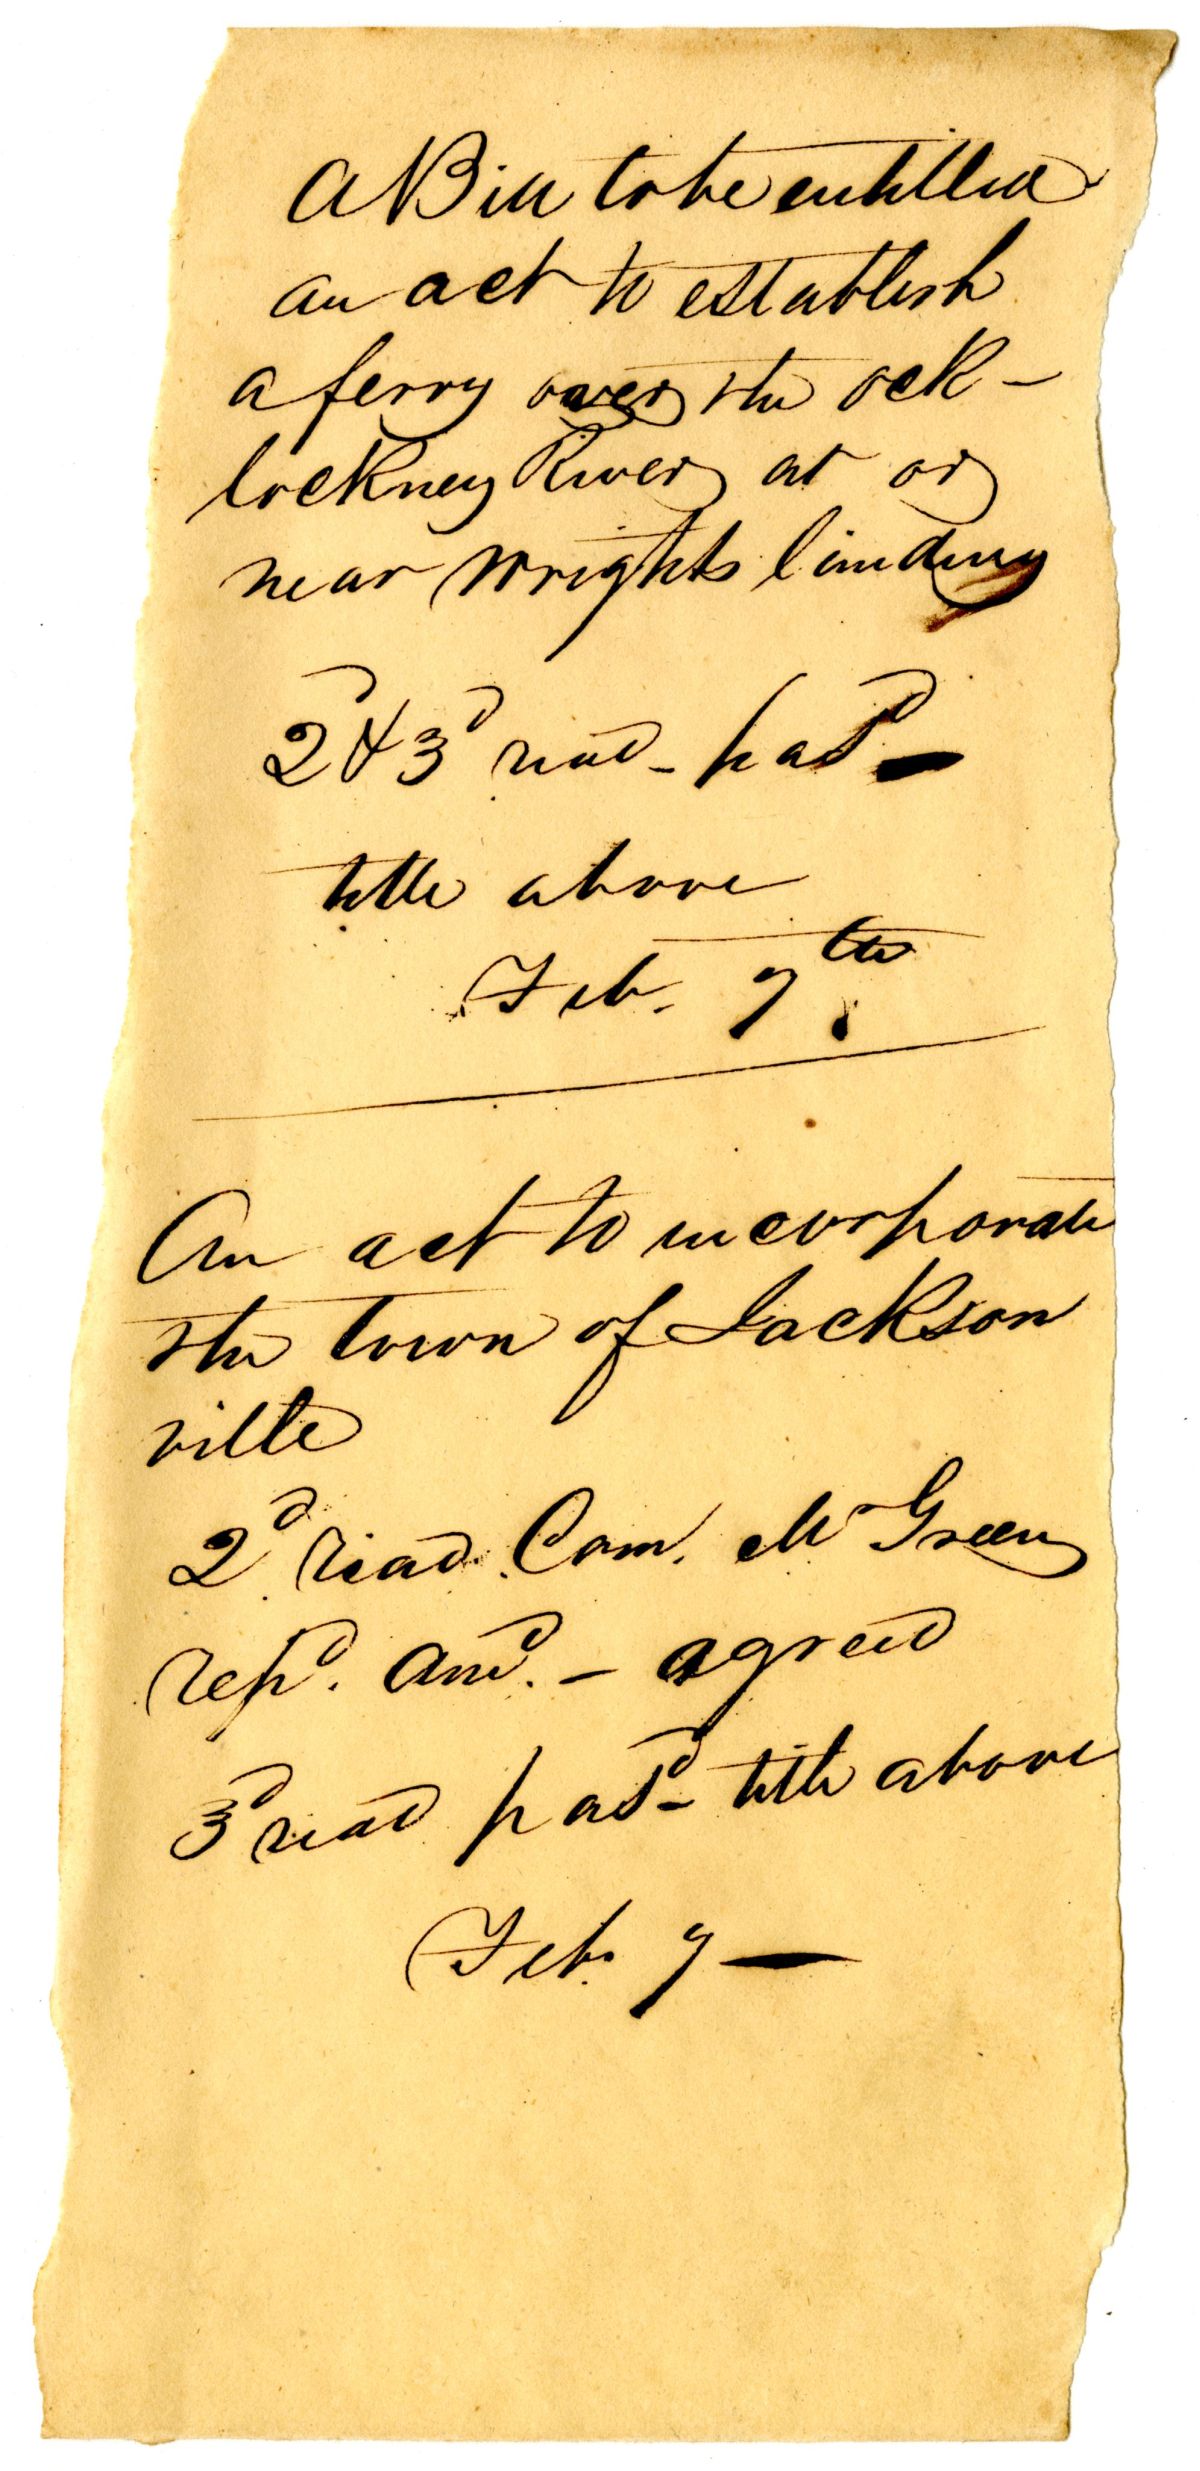 A Bill to be entitled
an act to establish
a ferry over the ock-
lockney River at or
near Wrights landing
2d & 3d read - pasd -
title above
Feb. 7th
An act to incorporate
the town of Jackson
ville
2d read. Com. Mr Green
repd. amd. - agreed
3d read pasd - title above
Feb. 7 -